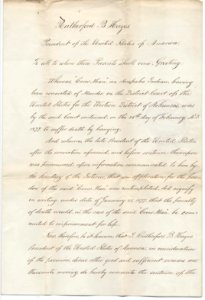 Rutherford B. Hayes
President of the United States of America,
To all to whom these Presents shall come, Greeting:
Whereas, Crow Man, an Arapahoe Indian, having
been convicted of Murder in the District Court of the
United States for the Western District of Arkansas, was
by the said Court sentenced, on the 10th day of February, A.D.
1877, to suffer death by hanging;
And whereas, the late President of the United States
after the conviction aforesaid and before sentence
was pronounced, upon information communicated to him by
the Secretary of the Interior, that an application for the pardon
of the said Crow Man was contemplated, did signify
in writing, under date of January 1877, that the penalty
of death would in the case of the said Crow Man, be com-
muted to imprisonment for life;
Now, therefore, be it known, that I, Rutherford B. Hayes,
President of the United States of America, in consideration
of the premises, divers other good and sufficient reasons me
thereunto moving, do hereby commute the sentence of the